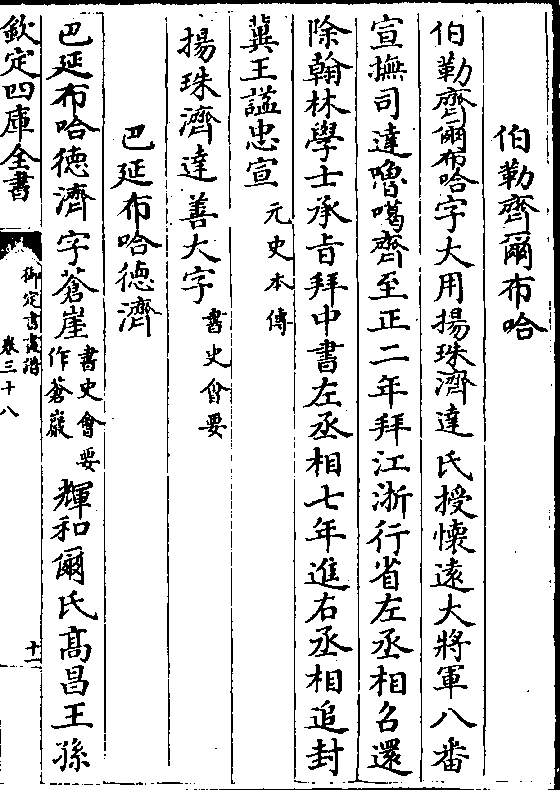 伯勒齊爾布哈
伯勒齊爾布哈字大用揚珠濟達氏授懷遠大將軍八番
宣撫司達嚕噶齊至正二年拜江浙行省左丞相召還
除翰林學士承旨拜中書左丞相七年進右丞相追封
冀王謚忠宣元史本傳
揚珠濟達善大字書史會要
巴延布哈德濟
巴延布哈德濟字蒼崖書史會要作蒼巖輝和爾氏高昌王孫
欽定四庫全書
御定書畫譜
卷三十八
十一